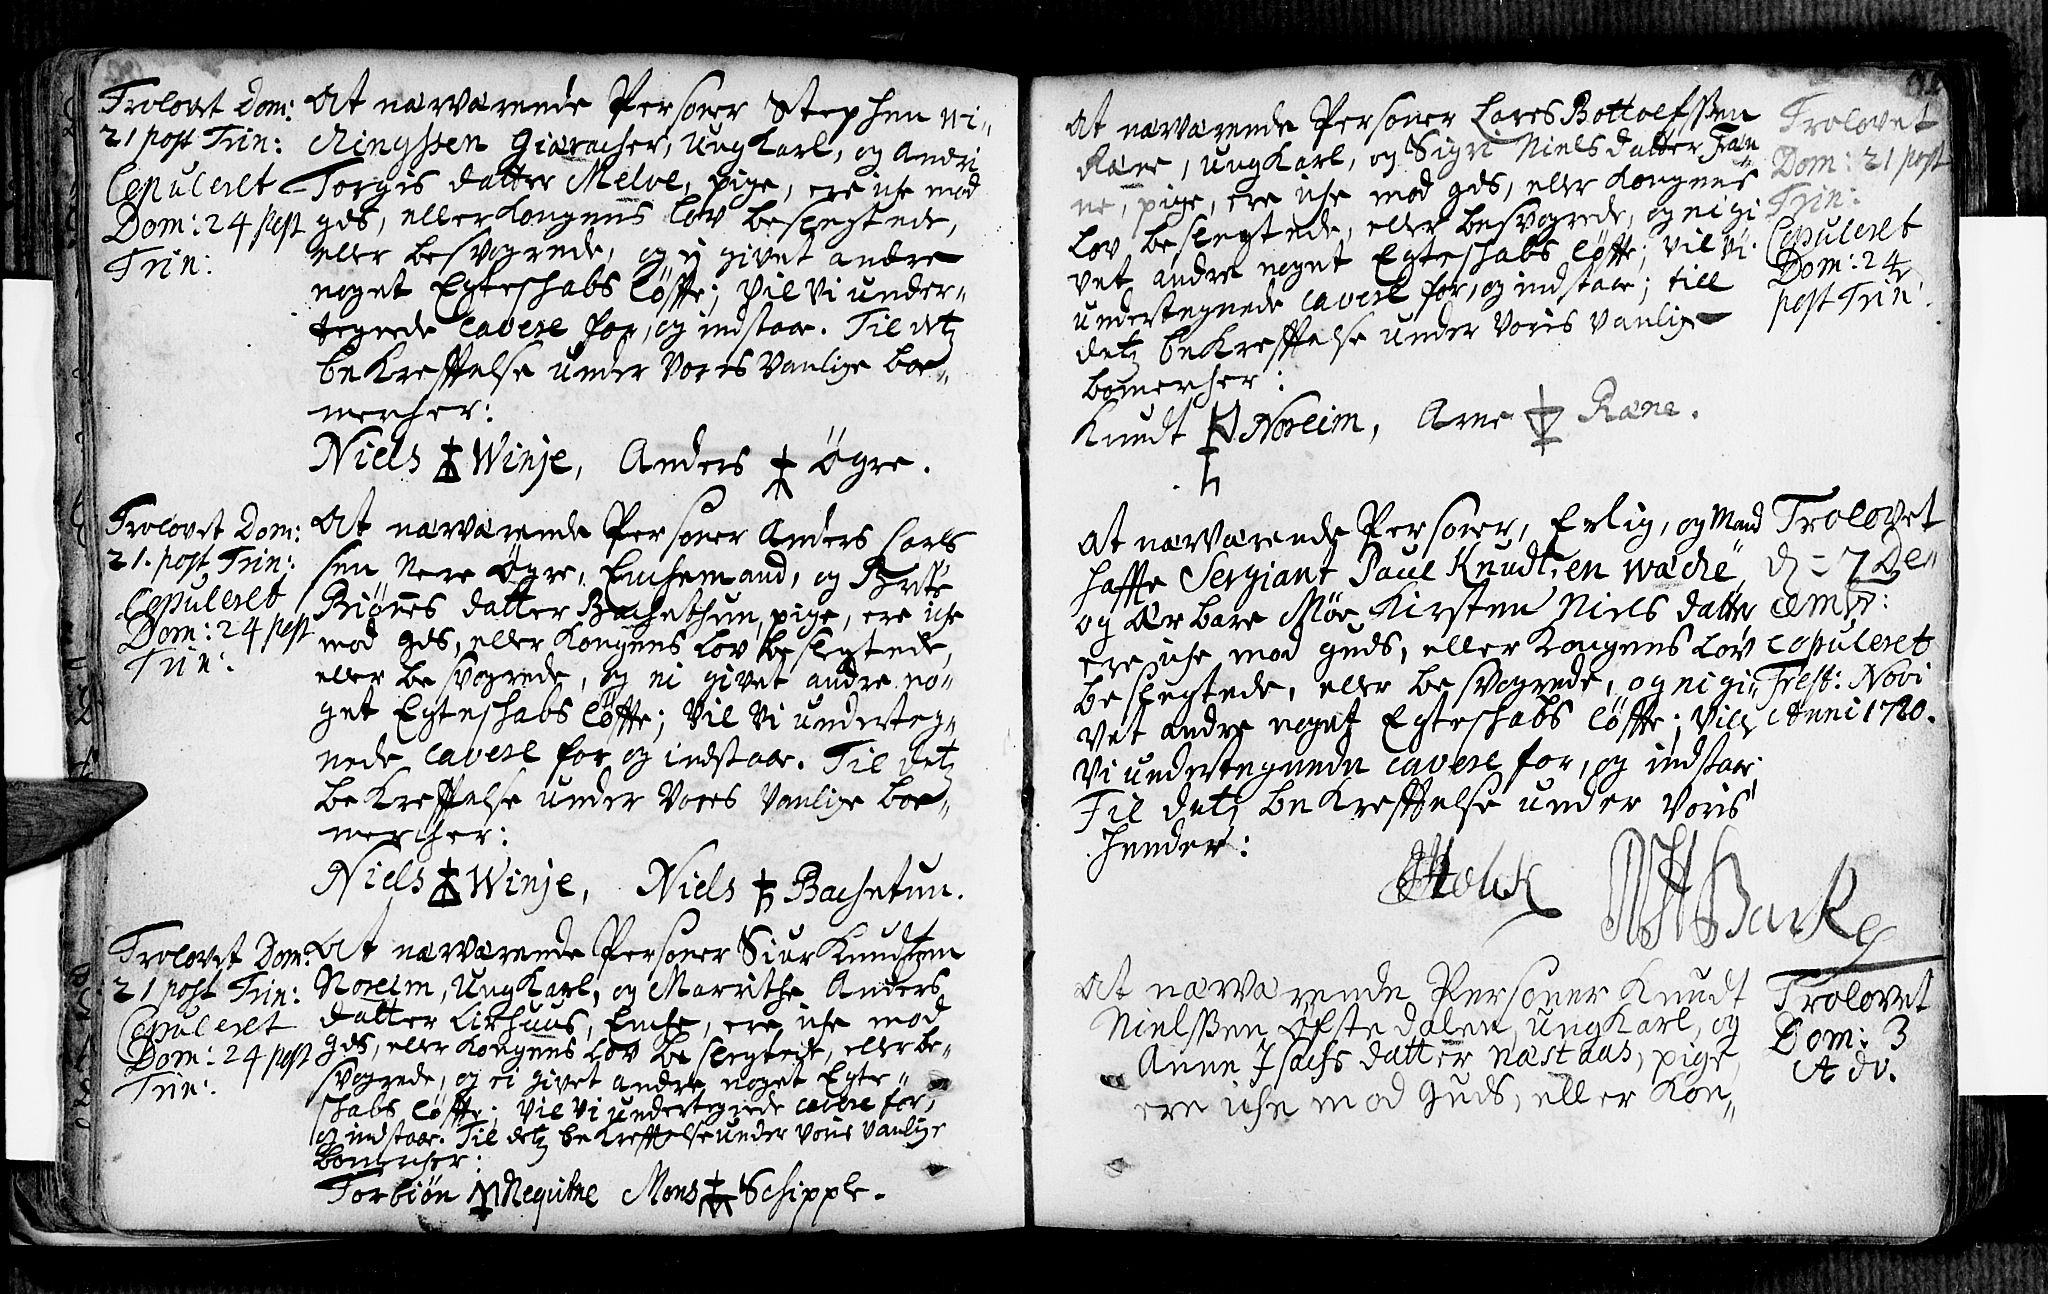 Trolovet Dom:
21 post Trin:
Copuleret
Dom: 24 post
Trin:
At nærværende Personer Stephen Vi„
Giæracher, Ung Karl, og Andri
Torgis datter Melve, pige, ere iche mod
gds, eller Kongens lov beslegtede,
eller besvogrede, og ej givet andre
noget Egteschabs løffte; Vil Vi under„
tegnede cavere for, og indstaa. Til detz
beKrefftelse under Voris Vanlige boe„
mercher:
Niels Winje, Anders Øgre.
Trolovet Dom:
21. post Trin:
Copuleret
Dom: 24 post
Trin:
At nærværende Personer Anders Lars
sen Nere Øgre, Enchemand, og Brite
Biørnes datter Bachethun, pige, ere iche
mod gds, eller Kongens lov beslegtede,
eller besvogrede, og ei givet andre no„
get Egteschabs løffte; Vil Vi underteg„
nede cavere for og indstaa. Til detz
beKrefftelse under Voris Vanlige boe„
mercher:
Niels Winje, Niels Bachetun.
Trolovet Dom:
21 post Trin:
Copuleret
Dom: 24 post
Trin:
At nærværende Personer Siur Knudssen
Noreim, Ung Karl, og Marrithe Anders
datter Lirhuus, Enche, ere iche mod
gds, eller Kongens lov beslegtede, eller be„
svogrede, og ei givet andre noget Egte„
schabs løffte; Vil Vi undertegnede cavere for,
og indstaa. Til detz beKrefftelse under Voris Vanlige
bomercher:
Torbiøn Nequitne Mons Schipple.
At nærværende Personer Lares Bottolfssen
Ræne, Ung Karl, og Sigri Niels datter Træn
ne, pige, ere iche mod gds, eller Kongens
lov beslegtede, eller besvogrede, og ei gi
vet andre noget Egteschabs løffte; Vil Vi
undertegnede cavere for, og indstaa; till
detz beKrefftelse under Voris Vanlige
bomercher:
Knudt Noreim, Arne Ræne.
Trolovet
Dom: 21 post
Trin:
Copuleret
Dom: 24
post Trin:
At nærværende Personer, Erlig, og Mand
haffte Sergiant Paul Knudt,en Wacke,
og ærbare Møe Kirsten Niels datter
ere iche mod guds, eller Kongens Lov
beslegtede, eller besvogrede, og ei gi„
vet andre noget Egteschabs løffte; Vill
Vi undertegnede cavere for, og indstaa;
Til detz beKrefftelse under Voris
hender:
Trolovet
d = 7 De„
cembr:
Copuleret
Fest: Novi
Anni 1720.
At nærværende Personer Knudt
Nielssen Øfstedalen, Ung Karl, og
Anne Isachs datter Næstaas, pige,
ere iche mod Guds, eller Kon„
Trolovet
Dom: 3
Adv.